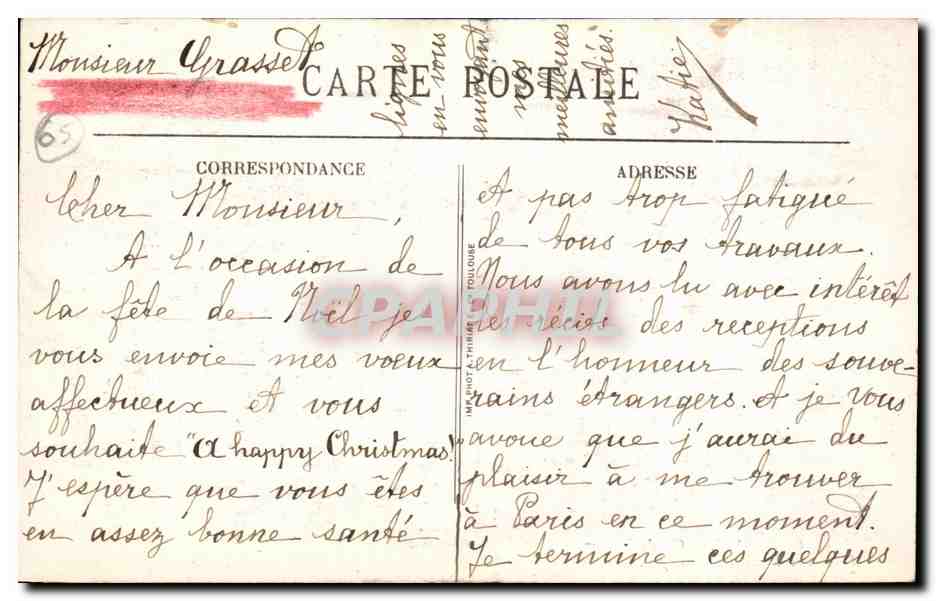 Monsieur Grasset
CARTE POSTALE
65
CORRESPONDANCE
Cher Monsieur,
A l'occasion de
la fête de Noël je
vous envoie mes vœux
affectueux et vous
souhaite "A happy Christmas!"
J'espère que vous êtes
en assez bonne santé
IMP. PHOT. A. THIRIAT & Cie TOULOUSE
ADRESSE
et pas trop fatigué
de tous vos travaux.
Nous avons lu avec intérêt
les récits des receptions
en l'honneur des souve-
rains étrangers. et je vous
avoue que j'aurai du
plaisir à me trouver
à Paris en ce moment.
Je termine ces quelques
lignes
en vous
envoyant
mes
meilleures
amitiés.
Katie
CPAPHIL